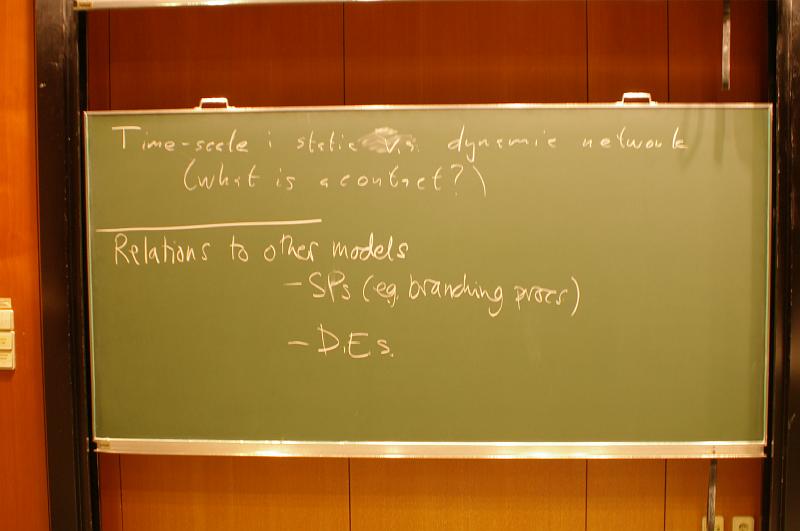 Time-scale : static v.s. dynamic network
(what is a contact?)
Relations to other models
- SPs (eg. branching procs)
- D.E s.